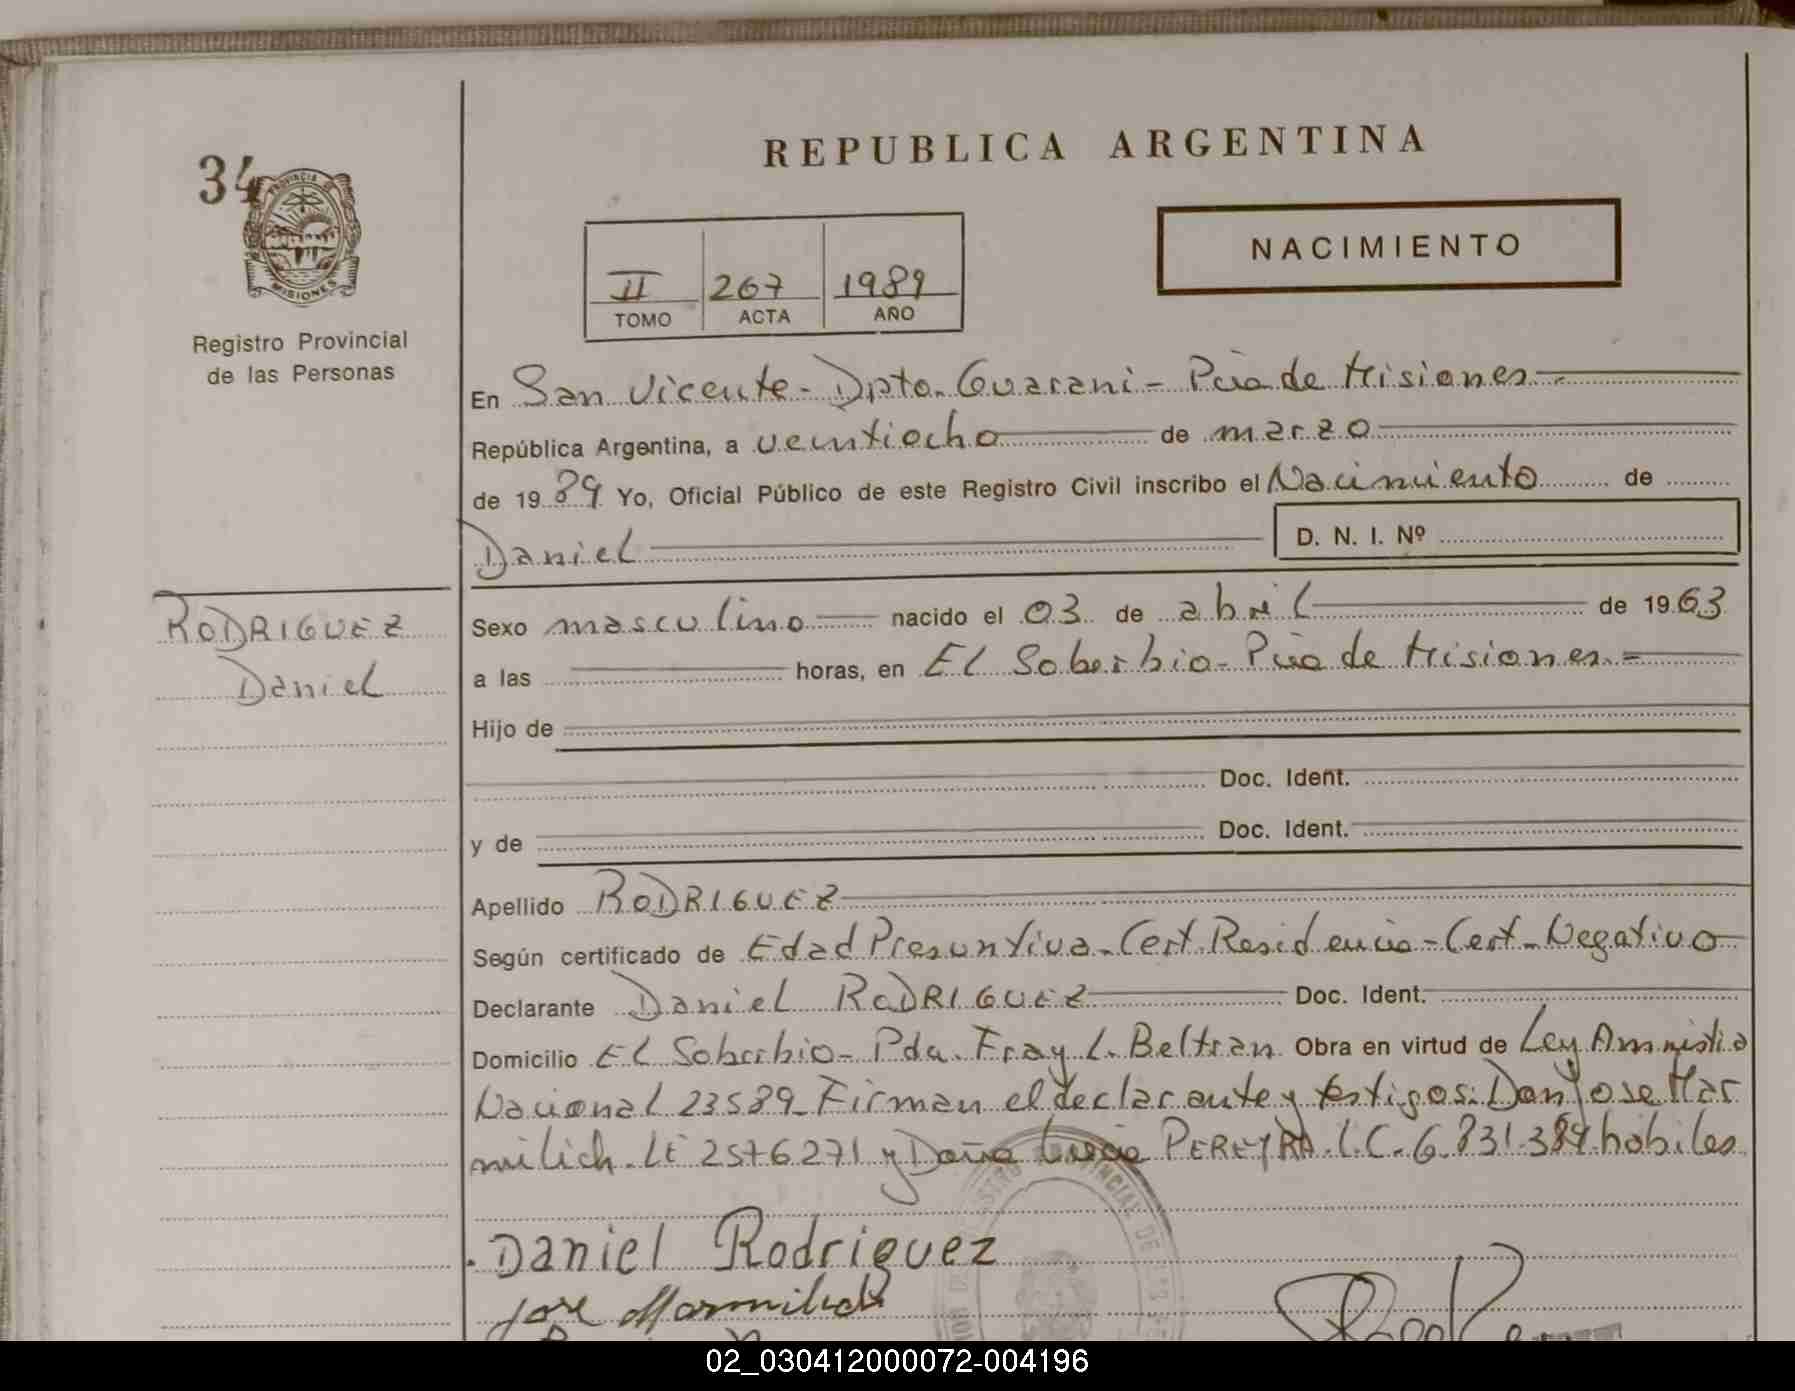 REPUBLICA ARGENTINA
34
PROVINCIA DE
MISIONES
Registro Provincial
de las Personas
NACIMIENTO
II 267 1989
TOMO ACTA AÑO
En San Vicente - Dpto. Guarani - Pcia de Misiones
República Argentina, a veintiocho de marzo
de 1989 Yo, Oficial Público de este Registro Civil inscribo el Nacimiento de
Daniel D. N. I. Nº
RODRIGUEZ
Daniel
Sexo masculino nacido el 03 de abril de 1963
a las horas, en El Soberbio - Pcia de Misiones.-
Hijo de
Doc. Ident.
y de Doc. Ident.
Apellido RODRIGUEZ
Según certificado de Edad Presuntiva - Cert. Residencia - Cert. Negativo
Declarante Daniel RODRIGUEZ Doc. Ident.
Domicilio El Soberbio - Pda. Fray L. Beltran Obra en virtud de Ley Amnistia
Nacional 23589. Firman el declarante y testigos: Don Jose Mar
milich. LE 2576271 y Doña Lucia PEREYRA. L.C. 6.831.384 habiles
Daniel Rodriguez
Jose Marmilich
02_030412000072-004196